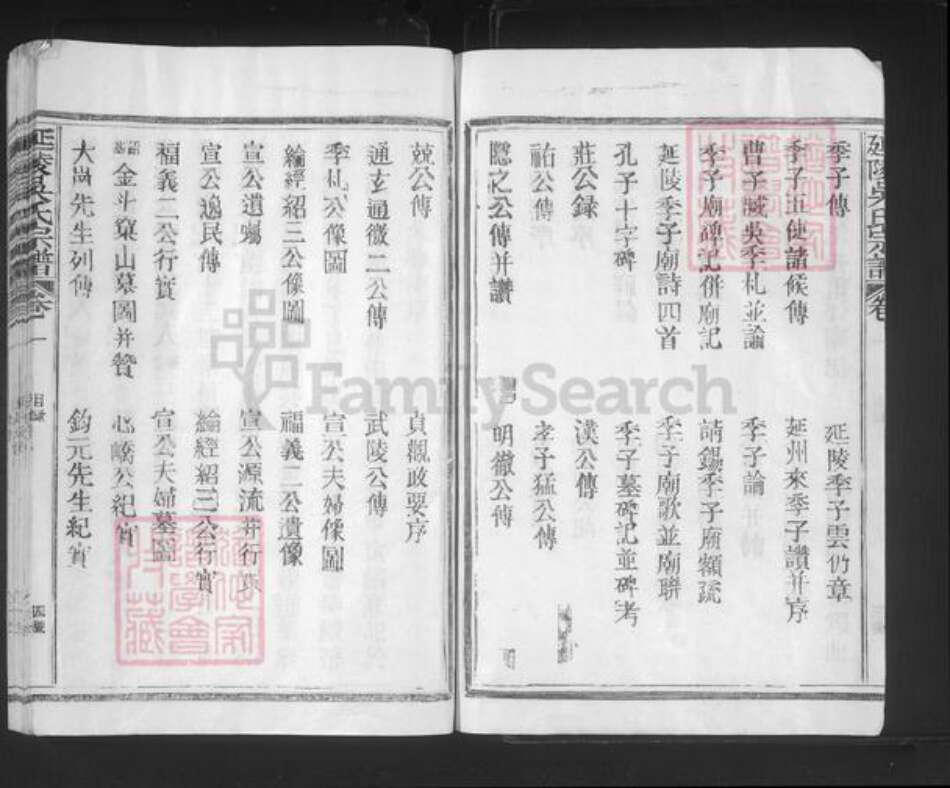 延陵吳氏宗譜 卷一
季子傳 延陵季子雲仍章
季子五使諸候傳 延州來季子讚并序
曹子臧吳季札並論 季子論
季子廟碑記併廟記 請錫季子廟額疏
延陵季子廟詩四首 季子廟歌並廟聯
孔子十字碑 季子墓碑記並碑考
莊公錄 漢公傳
祐公傳 孝子猛公傳
隱之公傳并讚 明徹公傳
兢公傳 貞觀政要序
通玄通微二公傳 武陵公傳
季札公像圖 宣公夫婦像圖
綸經紹三公像圖 福義二公遺像
宣公遺囑 宣公源流并行族
宣公逸民傳 綸經紹三公行實
福義二公行實 宣公夫婦墓圖
金斗窠山墓圖并贊 心嶠公紀實
大尚先生列傳 鈞元先生紀實
延陵吳氏宗譜 卷一 目錄
FamilySearch